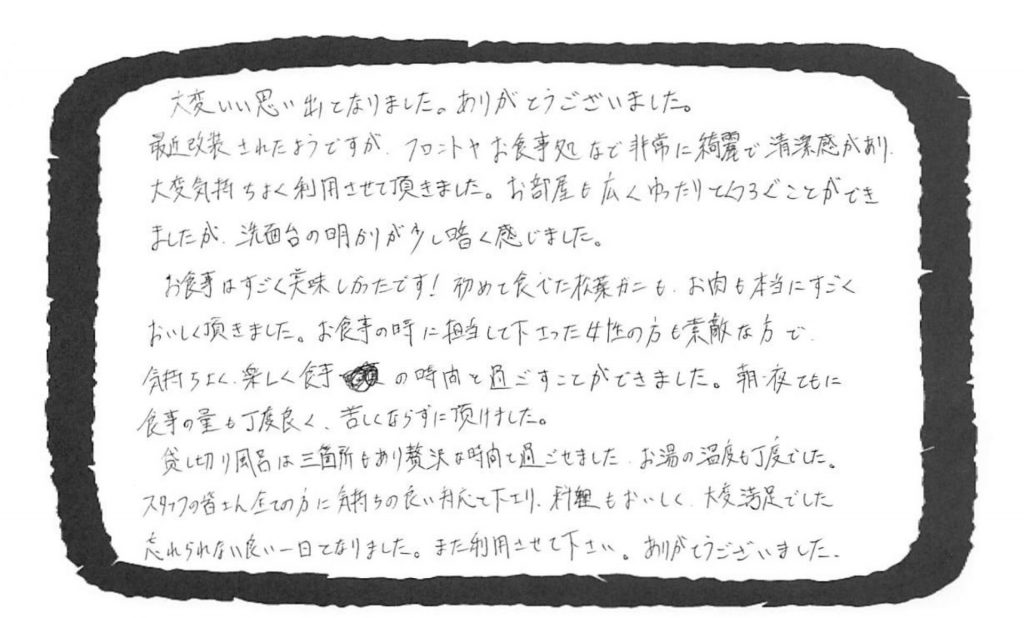 大変いい思い出となりました。ありがとうございました。
最近改装されたようですが、フロントやお食事処など非常に綺麗で清潔感があり、
大変気持ちよく利用させて頂きました。お部屋も広くゆったりてくつろぐことができ
ましたが、洗面台の明かりが少し暗く感じました。
お食事はすごく美味しかったです！初めて食べた松葉ガニも、お肉も本当にすごく
おいしく頂きました。お食事の時に担当して下さった女性の方も素敵な方で、
気持ちよく、楽しく食事の時間を過ごすことができました。朝・夜ともに
食事の量も丁度良く、苦しくならずに頂けました。
貸し切り風呂は三箇所もあり贅沢な時間を過ごせました。お湯の温度も丁度でした。
スタッフの皆さん全ての方に気持ちの良い対応で下さり、料理もおいしく、大変満足でした
忘れられない良い一日となりました。また利用させて下さい。ありがとうございました。